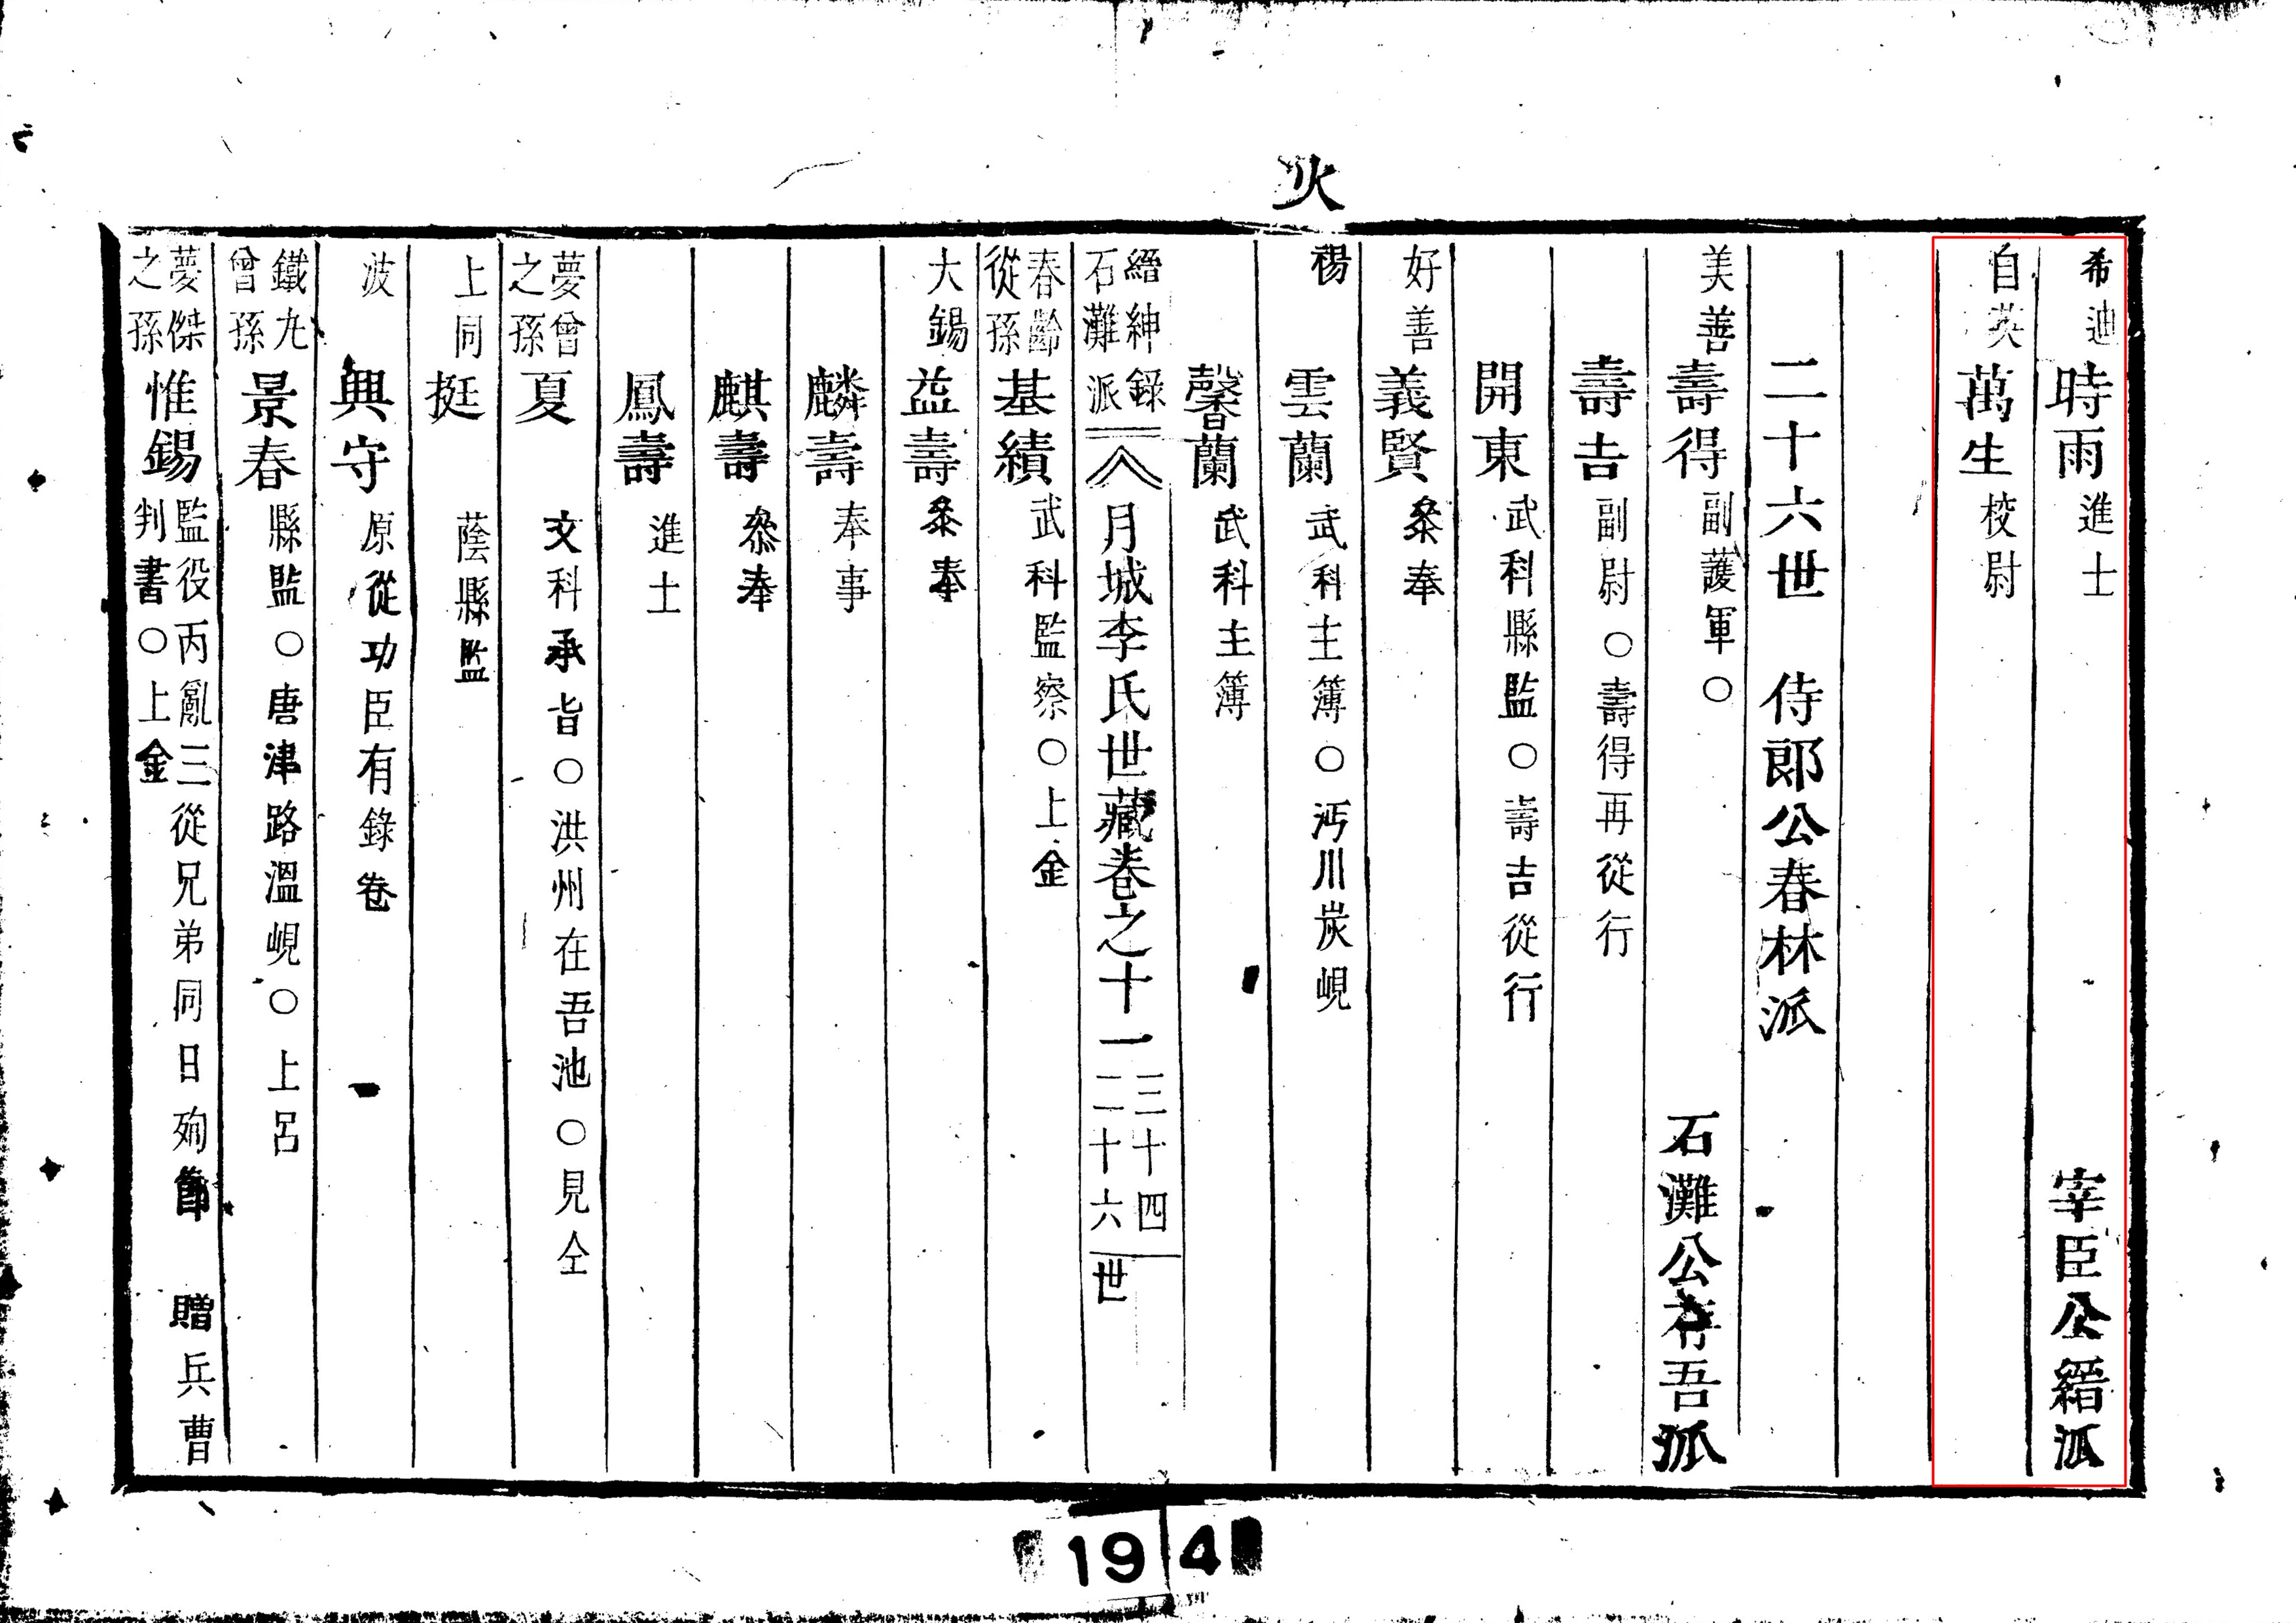 火
希迪 時雨 進士 宰臣公縉派
自英 萬生 校尉
二十六世 侍郎公春林派
美善 壽得 副護軍○ 石灘公存吾派
壽吉 副尉○壽得再從行
開東 武科縣監○壽吉從行
好善 義賢 叅奉
禓 雲蘭 武科主簿○沔川炭峴
馨蘭 武科主簿
縉紳錄
石灘派
月城李氏世藏卷之十一
三十四
二十六世
春齡
從孫 基績 武科監察○上仝
大錫 益壽 叅奉
麟壽 奉事
麒壽 叅奉
鳳壽 進士
夢曾
之孫 夏 文科承旨○洪州在吾池○見仝
上同 挺 蔭縣監
波 興守 原從功臣有錄卷
鐵九
曾孫 景春 縣監○唐津路溫峴○上呂
夢傑
之孫 惟錫 監役丙亂三從兄弟同日殉節 贈兵曹
判書○上仝
194